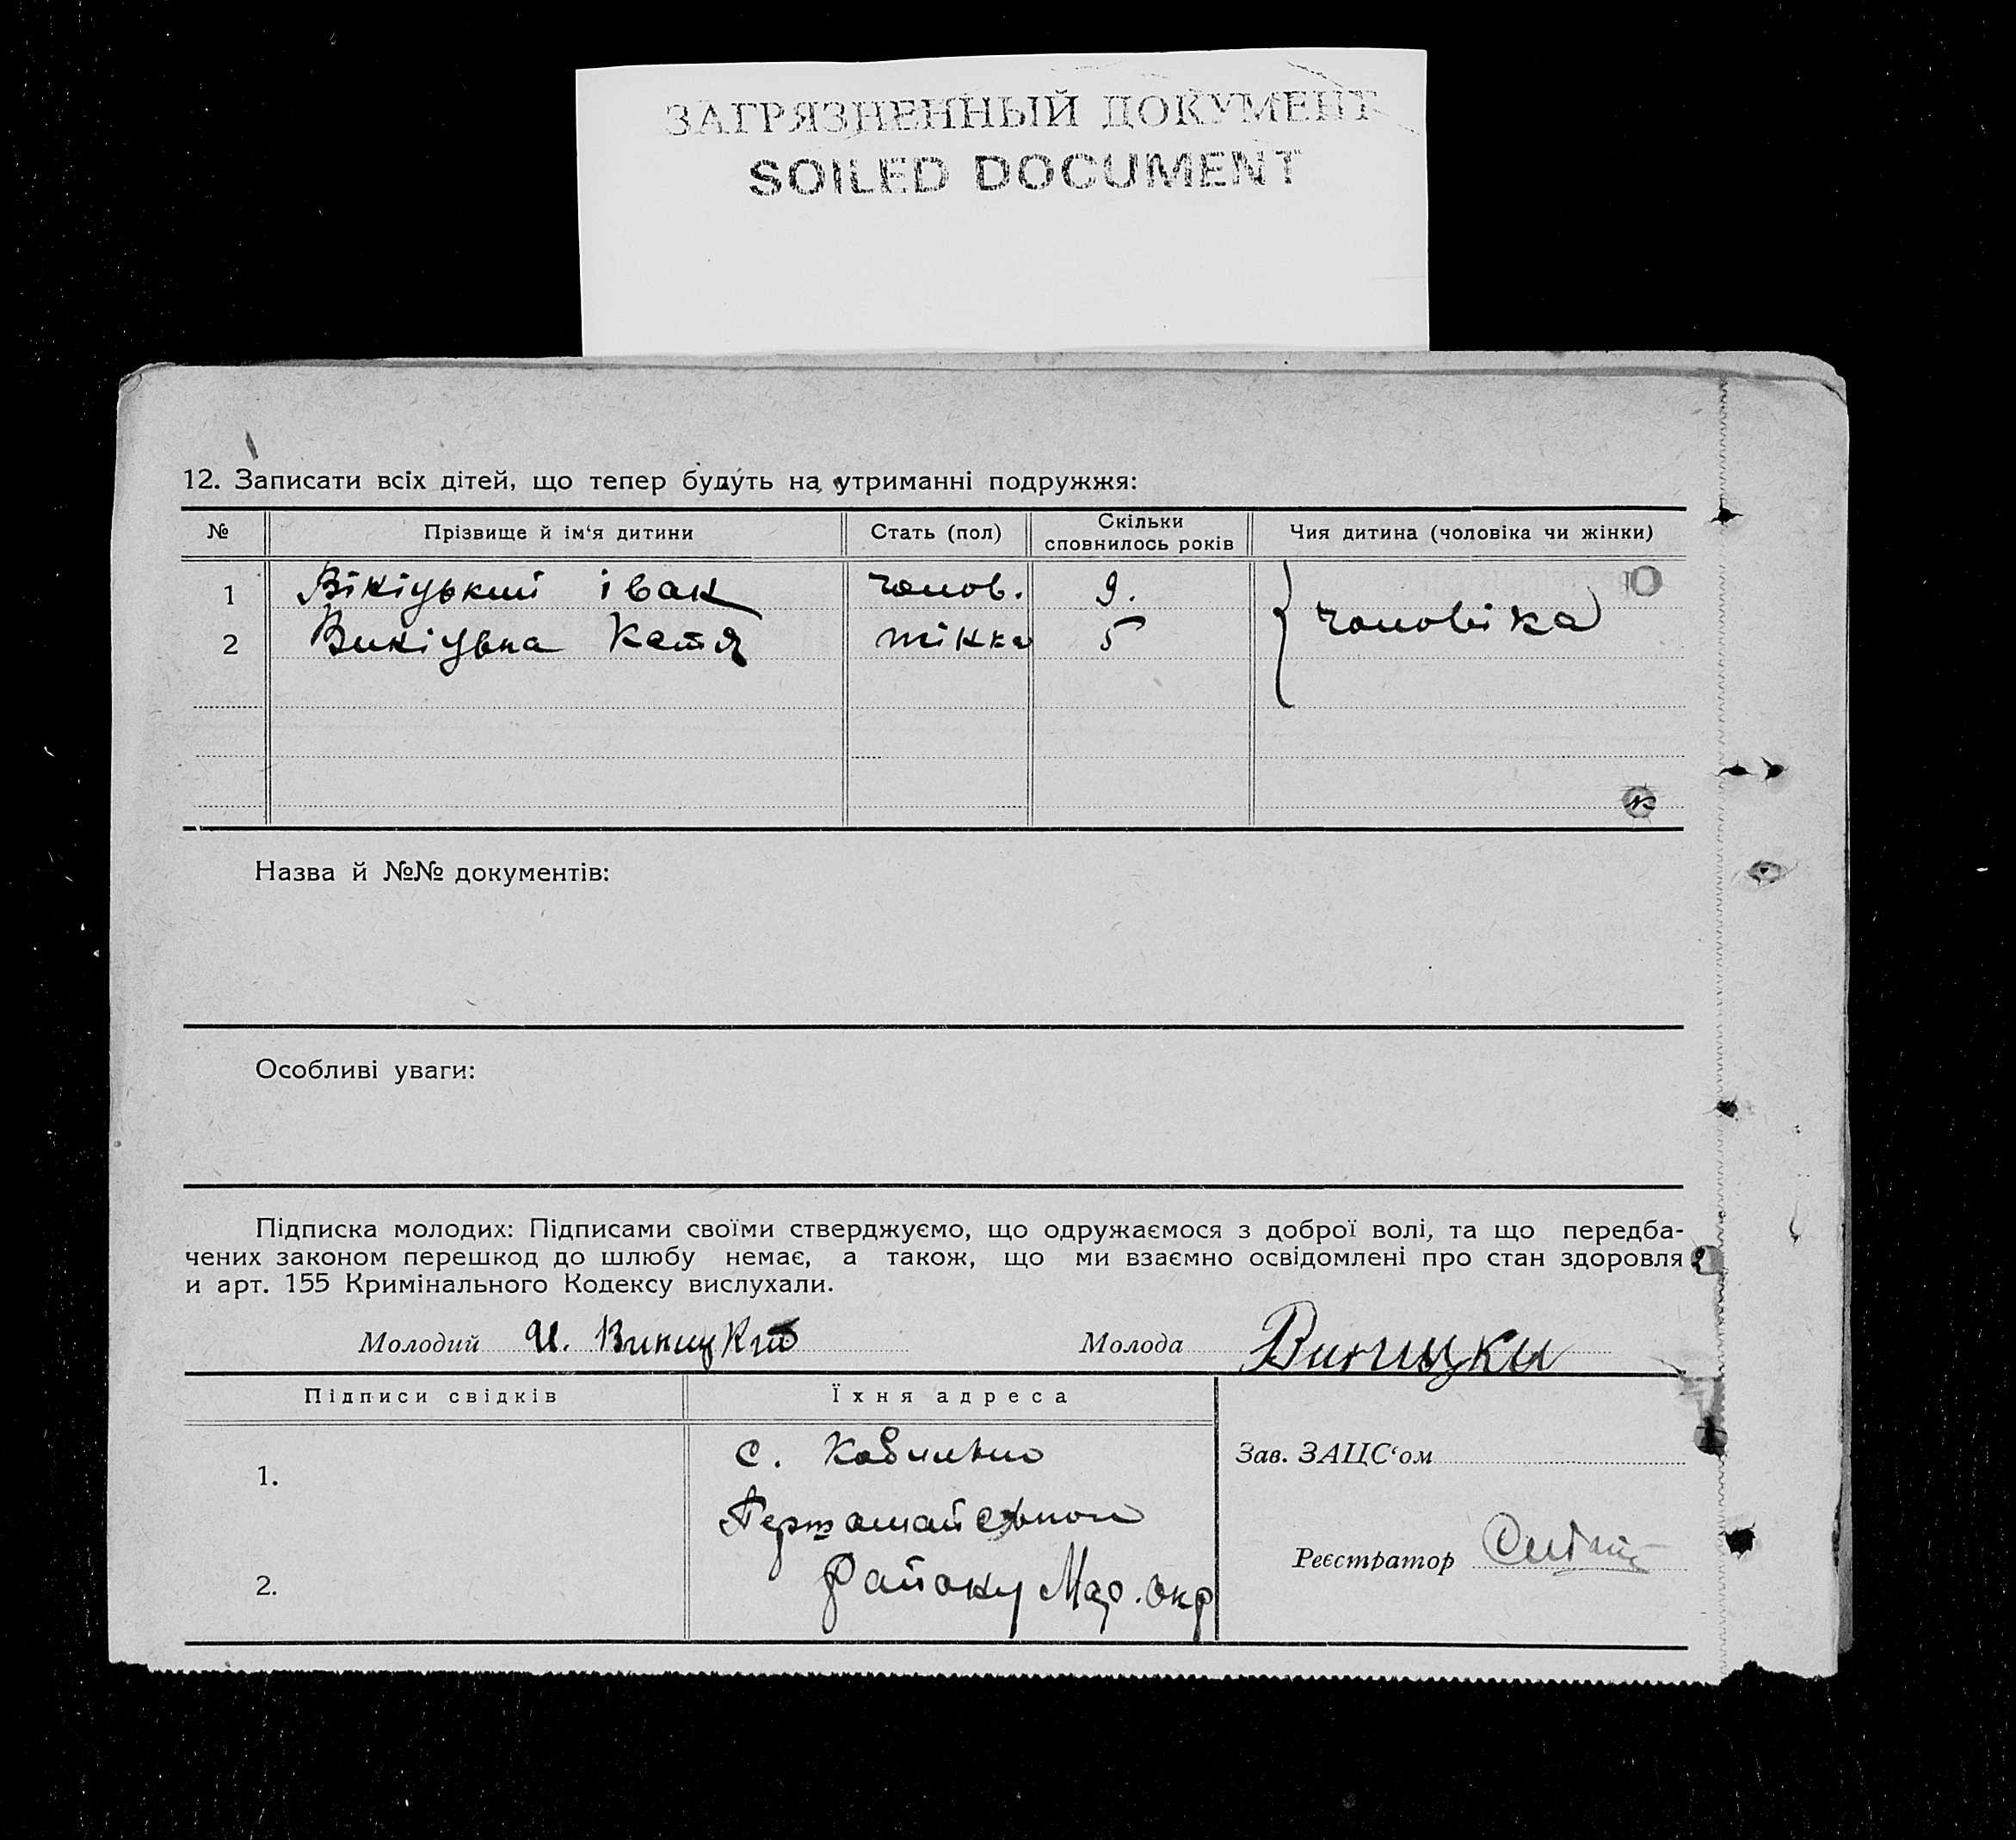 ЗАГРЯЗНЕННЫЙ ДОКУМЕНТ
SOILED DOCUMENT
12. Записати всіх дітей, що тепер будуть на утриманні подружжя:
№ Прізвище й ім'я дитини Стать (пол) Скільки сповнилось років Чия дитина (чоловіка чи жінки)
1 Вікіцький іван чолов. 9. чоловіка
2 Викіцька Катя жінка 5
Назва й №№ документів:
Особливі уваги:
Підписка молодих: Підписами своїми стверджуємо, що одружаємося з доброї волі, та що передба-
чених законом перешкод до шлюбу немає, а також, що ми взаємно освідомлені про стан здоровля
и арт. 155 Кримінального Кодексу вислухали.
Молодий И. Виницкий Молода Виницки
Підписи свідків Їхня адреса
с.
Зав. ЗАЦС'ом
1.
Першомайського
Реєстратор
2.
Району Мар. окр